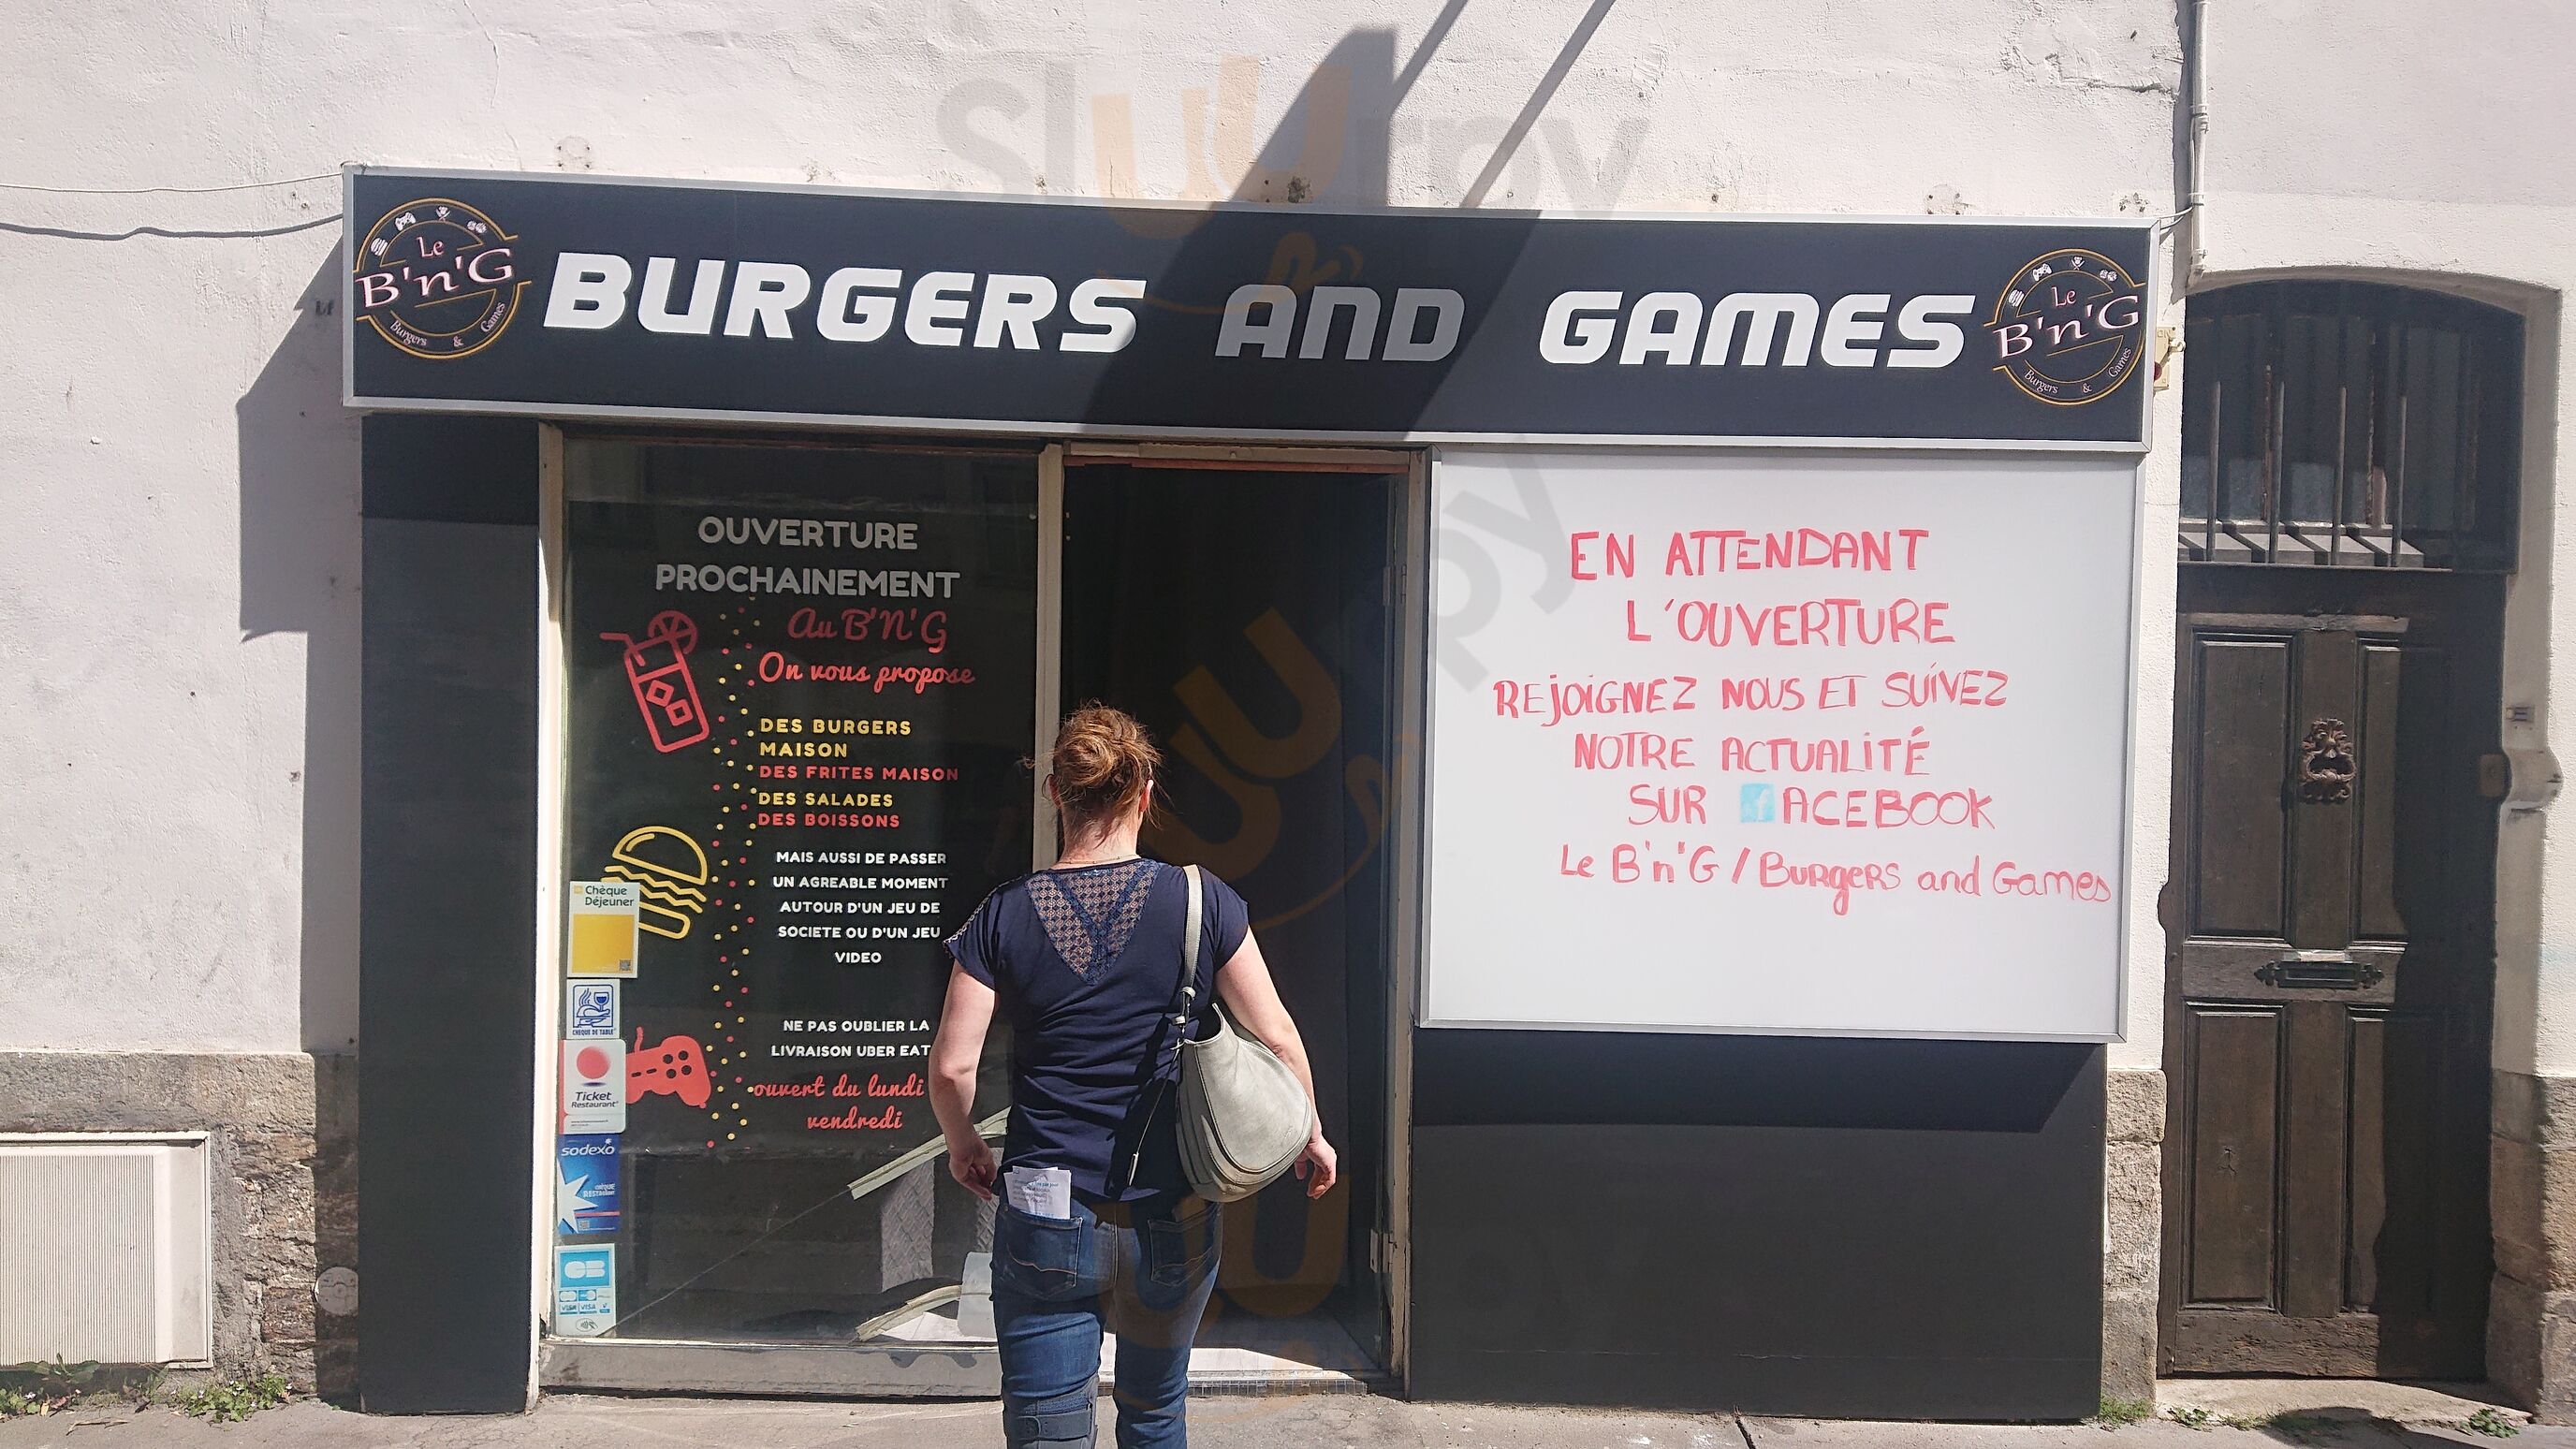 slurpy
Le
B'n'G
Burgers & Games
BURGERS AND GAMES
Le
B'n'G
Burgers & Games
OUVERTURE
PROCHAINEMENT
Au B'N'G
On vous propose
DES BURGERS
MAISON
DES FRITES MAISON
DES SALADES
DES BOISSONS
MAIS AUSSI DE PASSER
UN AGREABLE MOMENT
AUTOUR D'UN JEU DE
SOCIETE OU D'UN JEU
VIDEO
NE PAS OUBLIER LA
LIVRAISON UBER EAT
ouvert du lundi
vendredi
Chèque
Déjeuner
CHEQUE DE TABLE
Ticket
Restaurant
sodexo
CHÈQUE
RESTAURANT
CB
VISA
EN ATTENDANT
L'OUVERTURE
REJOIGNEZ NOUS ET SUIVEZ
NOTRE ACTUALITÉ
SUR fACEBOOK
Le B'n'G / Burgers and Games
slurpy